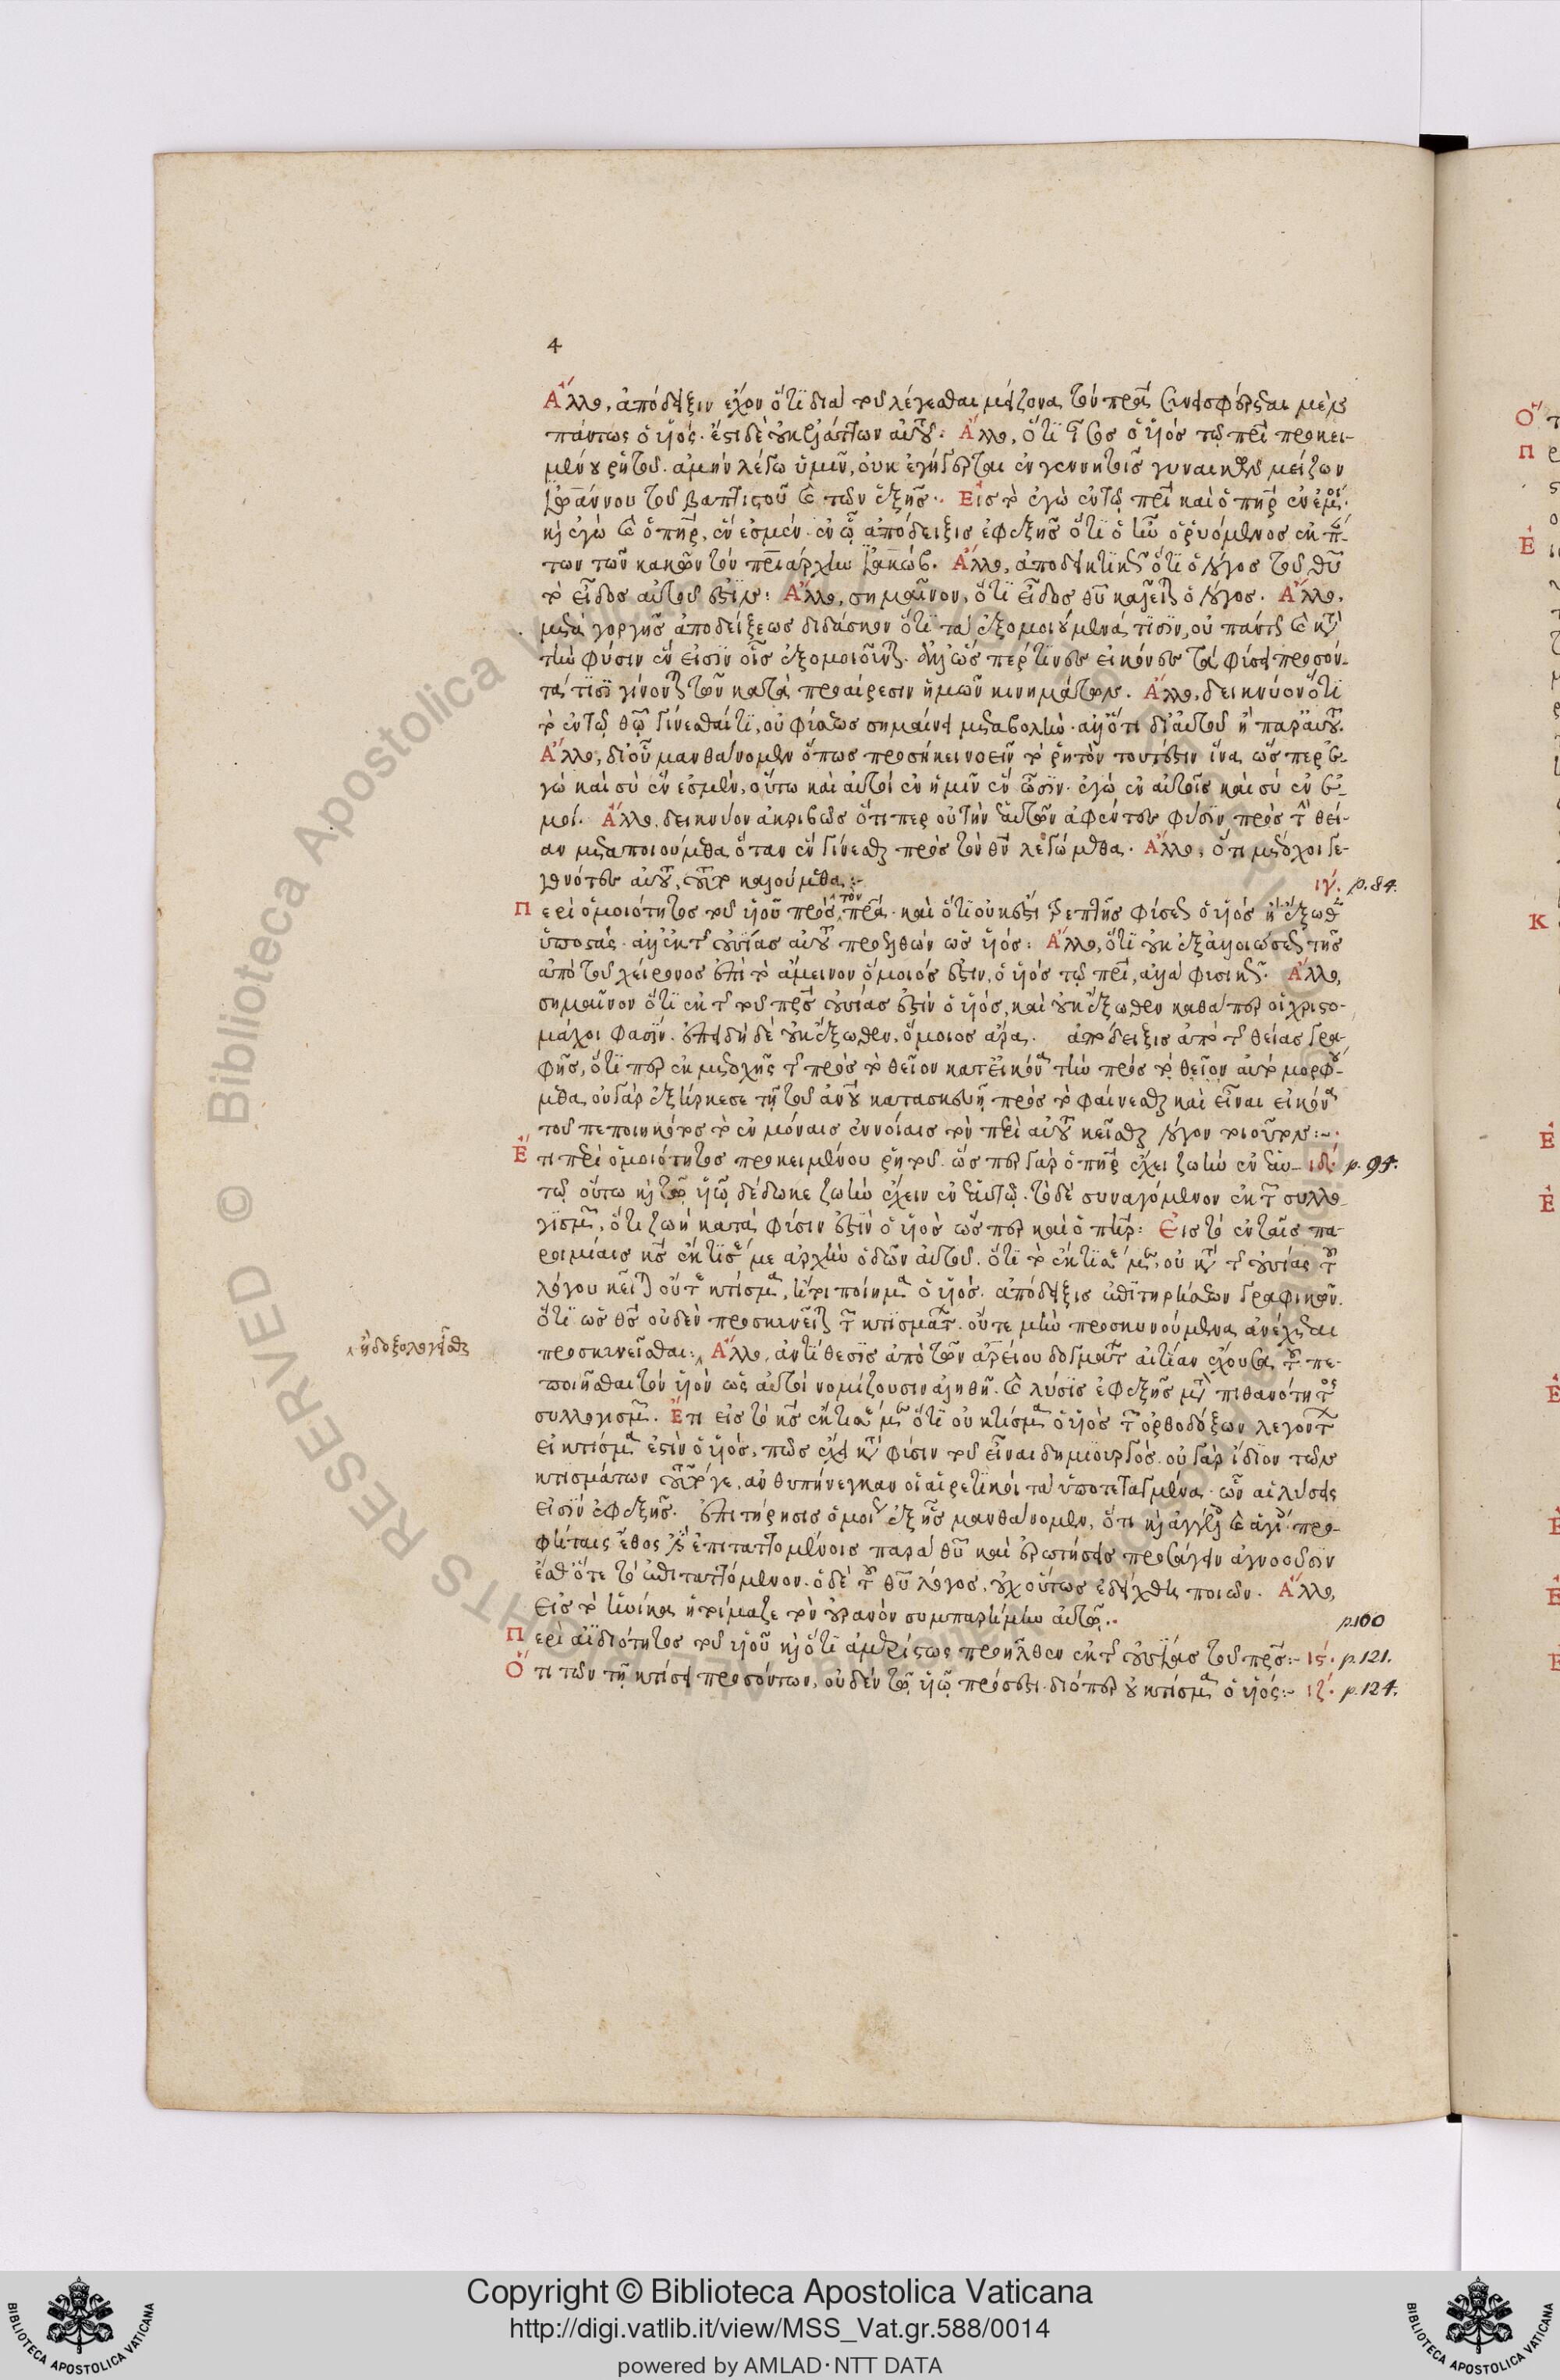 4
Ἄλλο, ἀπόδειξιν ἔχον ὅτι διὰ τοῦ λέγεσθαι μείζονα τὸν πρα συνεισφέρεται μὲν
πάντως ὁ υἱός. ἔστι δὲ οὐκ ἐλάττων αὐτοῦ. Ἄλλο, ὅτι ἴσος ὁ υἱός τῷ πρι προκει-
μένου ῥητοῦ. ἀμὴν λέγω ὑμῖν, οὐκ ἐγήγερται ἐν γεννητοῖς γυναικῶν μείζων
ἰωάννου τοῦ βαπτιστοῦ καὶ τῶν ἑξῆς. Εἰς τὸ ἐγὼ ἐν τῷ πρι καὶ ὁ πηρ ἐν ἐμοί.
καὶ ἐγὼ καὶ ὁ πηρ, ἕν ἐσμέν. ἐν ᾧ ἀπόδειξις ἐφεξῆς ὅτι ὁ υἱὸς ἦν ὁ ῥυόμενος ἐκ πάν-
των τῶν κακῶν τὸν πριάρχην ἰακώβ. Ἄλλο, ἀποδεικτικῶς ὅτι ὁ λόγος τοῦ θυ
τὸ εἶδος αὐτοῦ ἐστίν: Ἄλλο, σημαῖνον, ὅτι εἶδος θυ καλεῖται ὁ λόγος. Ἄλλο,
μετὰ γοργῆς ἀποδείξεως διδάσκον ὅτι τὰ ἐξομοιούμενά τισιν, οὐ πάντως καὶ κατὰ
τὴν φύσιν ἕν εἰσιν οἷς ἐξομοιοῦνται.
τά τισι γίνονται τῶν κατὰ προαίρεσιν ἡμῶν κινημάτων. Ἄλλο, δεικνύον ὅτι
τὸ ἐν τῷ θῷ γίνεσθαί τι, οὐ φύσεως σημαίνει μεταβολὴν. ἀλλ' ὅτι δι' αὐτοῦ ἢ παρ' αὐτοῦ.
Ἄλλο, δι' οὗ μανθάνομεν ὅπως προσήκει νοεῖν τὸ ῥητὸν τουτέστιν ἵνα, ὥσπερ ἐ-
γὼ καὶ σὺ ἕν ἐσμέν, οὕτω καὶ αὐτοὶ ἐν ἡμῖν ἓν ὦσιν. ἐγὼ ἐν αὐτοῖς καὶ σὺ ἐν ἐ-
μοί. Ἄλλο, δεικνύον ἀκριβῶς ὅτι περ οὐ τὴν ἑαυτῶν ἀφέντες φύσιν πρὸς τὴν θεί-
αν μεταποιούμεθα ὅταν ἓν γίνεσθαι πρὸς τὸν θν λεγώμεθα. Ἄλλο, ὅτι μέτοχοι γε-
γονότες αὐτοῦ, καλούμεθα:- ιγ. p. 84.
Περὶ ὁμοιότητος τοῦ υἱοῦ πρὸς τὸν πρα. καὶ ὅτι οὐκ ἔστι τρεπτῆς φύσεως ὁ υἱός ἢ ἔξωθεν
ὑποστάς. ἀλλ' ἐκ τῆς οὐσίας αὐτοῦ προελθὼν ὡς υἱός: Ἄλλο, ὅτι οὐκ ἐξ ἀλλοιώσεως τῆς
ἀπὸ τοῦ χείρονος ἐπὶ τὸ ἄμεινον ὅμοιός ἐστιν, ὁ υἱός τῷ πρι, ἀλλὰ φυσικῶς. Ἄλλο,
σημαῖνον ὅτι ἐκ τῆς τοῦ πρς οὐσίας ἐστὶν ὁ υἱός, καὶ οὐκ ἔξωθεν καθάπερ οἱ χριστο-
μάχοι φασίν. ἐπειδὴ δὲ οὐκ ἔξωθεν, ὅμοιος ἄρα. ἀπόδειξις ἀπὸ τῆς θείας γρα-
φῆς, ὅτι περ ἐκ μετοχῆς τῆς πρὸς τὸ θεῖον κατ' εἰκόνα τὴν πρὸς τὸ θεῖον αὐτὸ μορφού-
μεθα. οὐ γὰρ ἐξήρκεσε τῇ τοῦ ἀνου κατασκευῇ πρὸς τὸ φαίνεσθαι καὶ εἶναι εἰκόνα
τοῦ πεποιηκότος τὸ ἐν μόναις ἐννοίαις τὸν περὶ αὐτοῦ κεῖσθαι λόγον τοιοῦτον:-
Ἔτι περὶ ὁμοιότητος προκειμένου ῥητοῦ. ὥσπερ γὰρ ὁ πηρ ἔχει ζωὴν ἐν ἑαυ- ιδ. p. 94.
τῷ οὕτω καὶ τῷ υἱῷ δέδωκε ζωὴν ἔχειν ἐν ἑαυτῷ. τὸ δὲ συναγόμενον ἐκ τοῦ συλλο-
γισμοῦ, ὅτι ζωὴ κατὰ φύσιν ἐστὶν ὁ υἱὸς ὥσπερ καὶ ὁ πηρ: Εἰς τὸ ἐν ταῖς πα-
ροιμίαις κς ἔκτισέ με ἀρχὴν ὁδῶν αὐτοῦ. ὅτι τὸ ἔκτισέ με, οὐ κατὰ τῆς οὐσίας τοῦ
λόγου κεῖται οὔτε κτίσμα, ἤτοι ποίημα ὁ υἱός. ἀπόδειξις ἐπιτηρήσεων γραφικῶν.
ὅτι ὡς θς οὐδὲν προσκυνεῖται τῶν κτισμάτων. οὔτε μὴν προσκυνούμενα ἀνέχεται
προσκυνεῖσθαι: Ἄλλο, ἀντίθεσις ἀπὸ τῶν ἀρείου δογμάτων αἰτίαν ἔχουσα τοῦ πε-
ἢ δοξολογεῖσθαι
ποιῆσθαι τὸν υἱὸν ὡς αὐτοὶ νομίζουσιν ἀληθῆ. καὶ λύσις ἐφεξῆς μετὰ πιθανότητος
συλλογισμοῦ. Ἔτι εἰς τὸ κς ἔκτισέ με ὅτι οὐ κτίσμα ὁ υἱὸς τῶν ὀρθοδόξων λεγόντων
εἰ κτίσμα ἐστὶν ὁ υἱός, πῶς ἔχει κατὰ φύσιν τοῦ εἶναι δημιουργός. οὐ γὰρ ἴδιον τῶν
κτισμάτων τοῦτό γε, ἀνθυπήνεγκαν οἱ αἱρετικοὶ τὰ ὑποτεταγμένα. ὧν αἱ λύσεις
εἰσὶν ἐφεξῆς. ἐπιτήρησις ὁμοίως ἐξ ἧς μανθάνομεν, ὅτι καὶ ἀγγέλοις καὶ ἁγίοις προ-
φήταις ἔθος ἐπιταττομένοις παρὰ θυ καὶ ἐρωτήσεις προσάγειν ἀγνοοῦσιν
ἔσθ' ὅτε τὸ ἐπιταττόμενον. ὁ δὲ τοῦ θυ λόγος, οὐχ οὕτως ἐδείχθη ποιῶν. Ἄλλο,
εἰς τὸ ἡνίκα ἡτοίμαζε τὸν οὐρανὸν συμπαρήμην αὐτῷ. p.100
Περὶ ἀϊδιότητος τοῦ υἱοῦ καὶ ὅτι ἀμερίστως προῆλθεν ἐκ τῆς οὐσίας τοῦ πρς:- ις. p. 121.
Ὅτι τῶν τῇ κτίσει προσόντων, οὐδὲν τῷ υἱῷ πρόσεστι. διόπερ οὐ κτίσμα ὁ υἱός:- ιζ. p. 124.
Copyright © Biblioteca Apostolica Vaticana
http://digi.vatlib.it/view/MSS_Vat.gr.588/0014
powered by AMLAD·NTT DATA
BIBLIOTECA APOSTOLICA VATICANA
BIBLIOTECA APOSTOLICA VATICANA